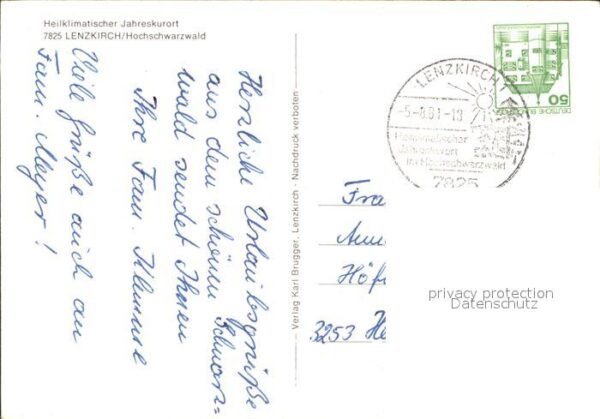 Heilklimatischer Jahreskurort
7825 LENZKIRCH/Hochschwarzwald
Herzliche Urlaubsgrüße
aus dem schönen Schwarz=
wald sendet Ihnen
Ihre Fam.
Viele Grüße auch an
Fam. Meyer!
Verlag Karl Brugger, Lenzkirch - Nachdruck verboten
LENZKIRCH 1
Heilklimatischer
Jahreskurort
im Hochschwarzwald
7825
50
DEUTSCHE BUNDESPOST
Frau
Höf
3253 He
privacy protection
Datenschutz